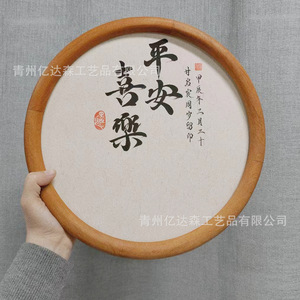 平安
喜樂
甲辰年二月二十
青州亿达森工艺品有限公司
青州亿达森工艺品有限公司